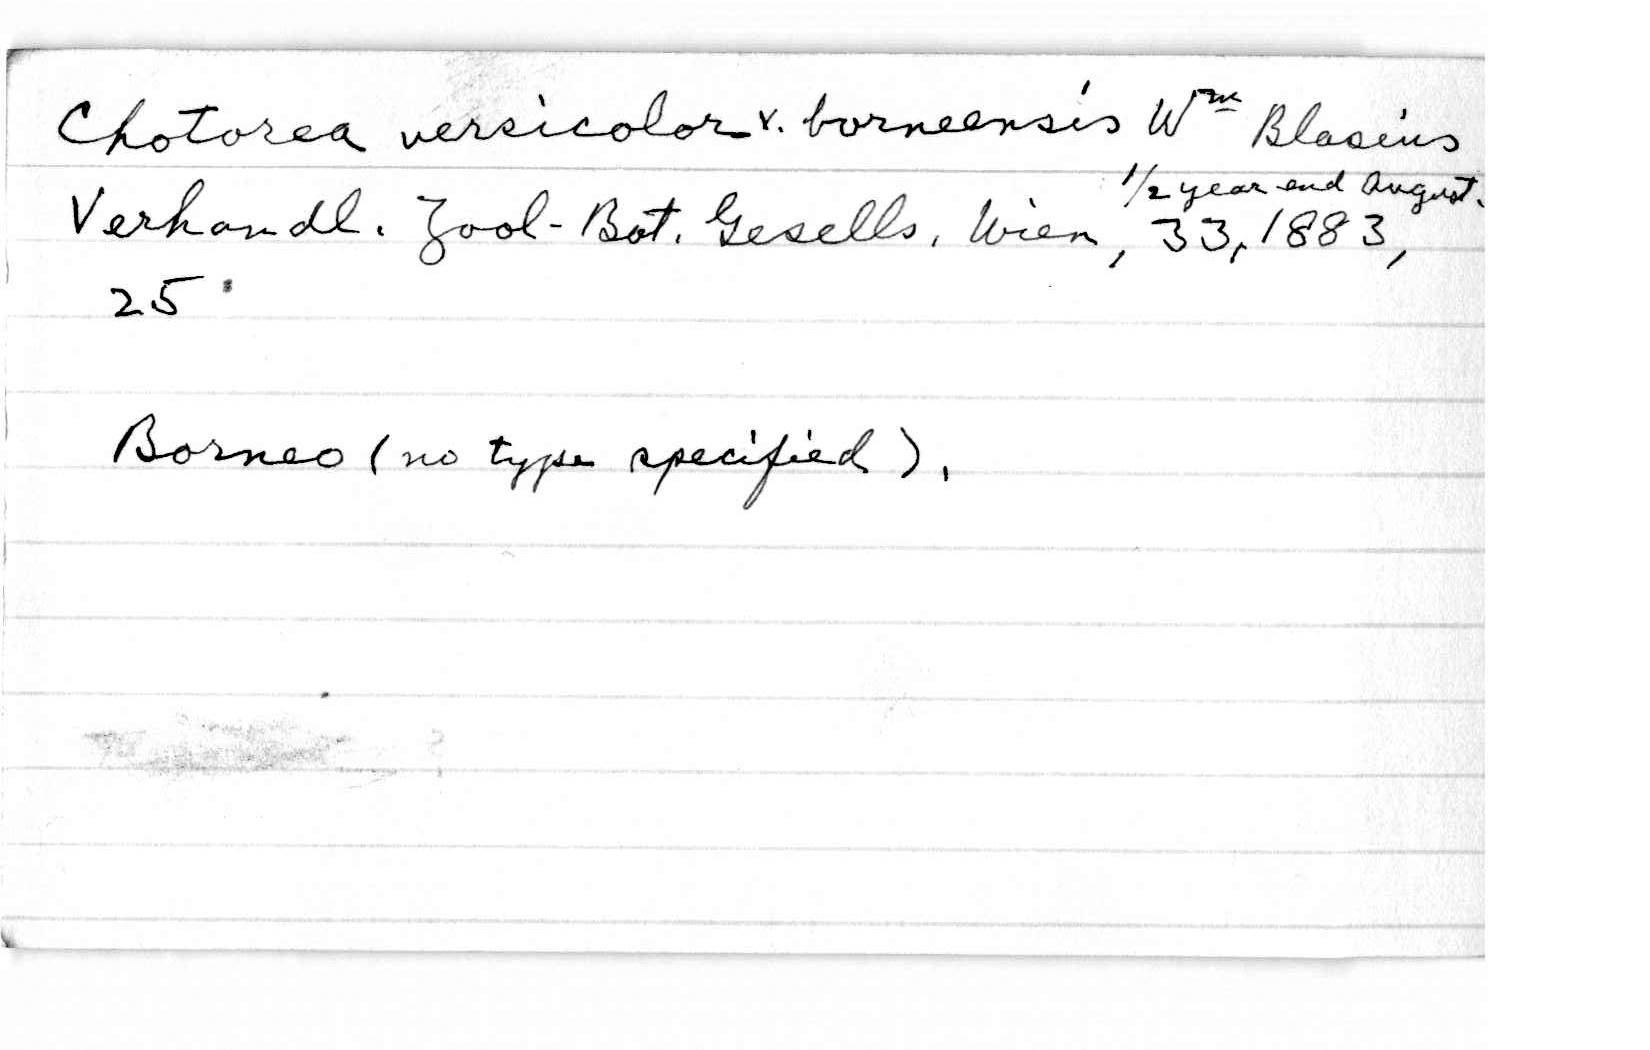 Chotorea versicolor v. borneensis Wm Blasius
1/2 year end August.
Verhandl. Zool-Bot. Gesells, Wien, 33, 1883,
25
Borneo (no type specified).